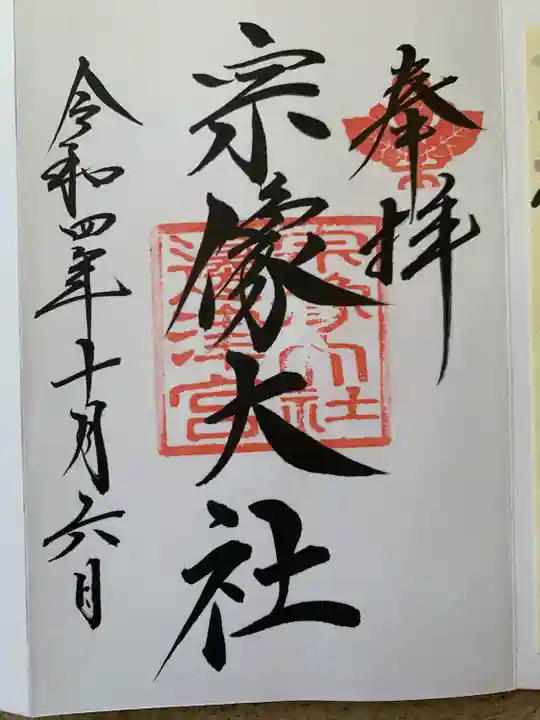 奉拝
宗像大社
宗像大社
邊津宮
令和四年十月六日